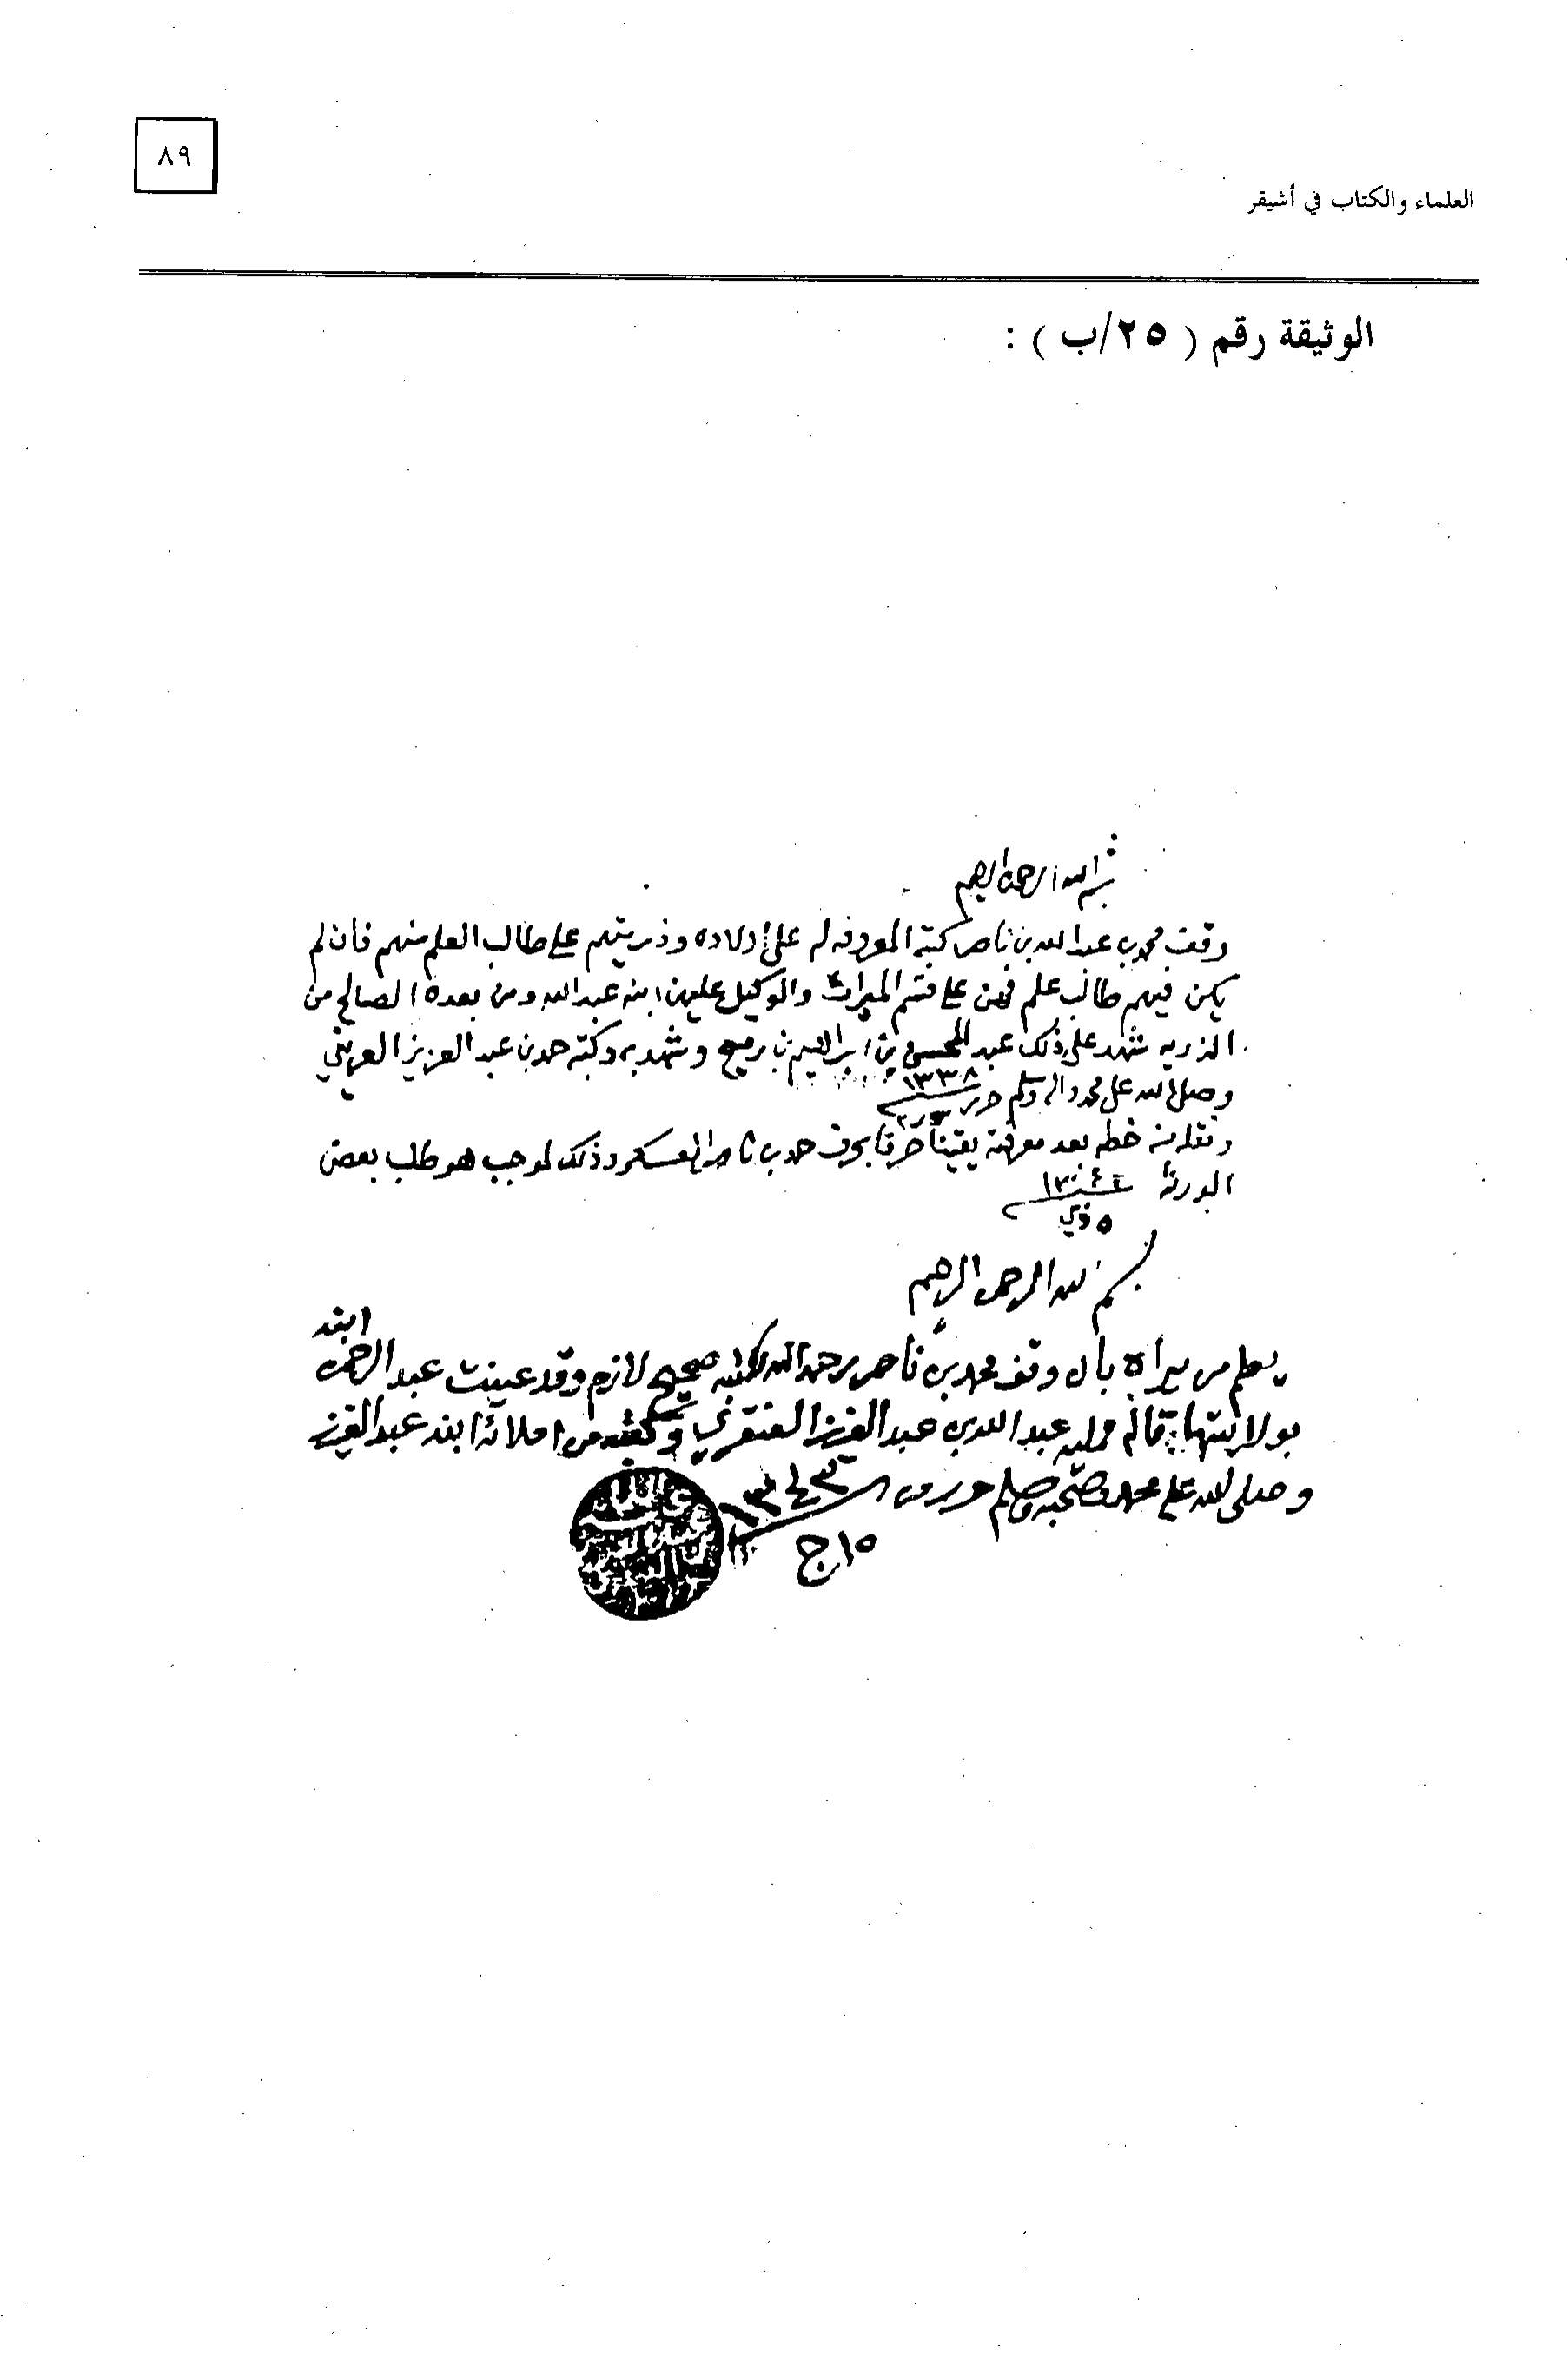 ٨٩
العلماء والكتاب في أشيقر
الوثيقة رقم ( ٢٥/ب ) :
بسم الله الرحمن الرحيم
وقف محمد بن عبدالله بن ناصر كتبه المعروفه له على اولاده وذريتهم على طالب العلم منهم فان لم
يكن فيهم طالب علم فهن على قسم الميراث والوكيل عليهن ابنه عبدالله ومن بعده الصالح من
الذريه شهد على ذلك عبد المحسن بن ابراهيم بن رميح وشهد به وكتبه حمد بن عبد العزيز العريني
وصلى الله على محمد واله وسلم حرر ١٣٣٨
ونقله من خطه بعد معرفته يقيناً حرفا بحرف حمد بن ناصر العسكر وذلك لموجب هو طلب بعض
الورثة
٥ ذي
بسم الله الرحمن الرحيم
يعلم من يراه بان وقف محمد بن ناصر رحمه الله لكتبه صحيح لازم وقد عينت عبد الرحمن ابنه
بولايتها قاله ممليه عبد الله بن عبد العزيز العنقري وكتبه من املائه ابنه عبد العزيز
وصلى الله على محمد وصحبه وسلم حرر من ١٣٤٣
١٥ ج